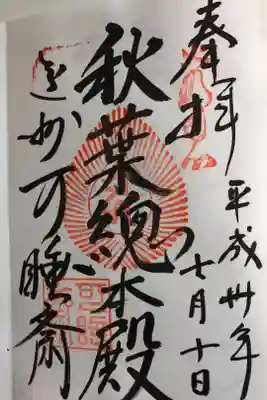 奉拝
平成卅年
七月十日
秋葉總本殿
遠州可睡斎